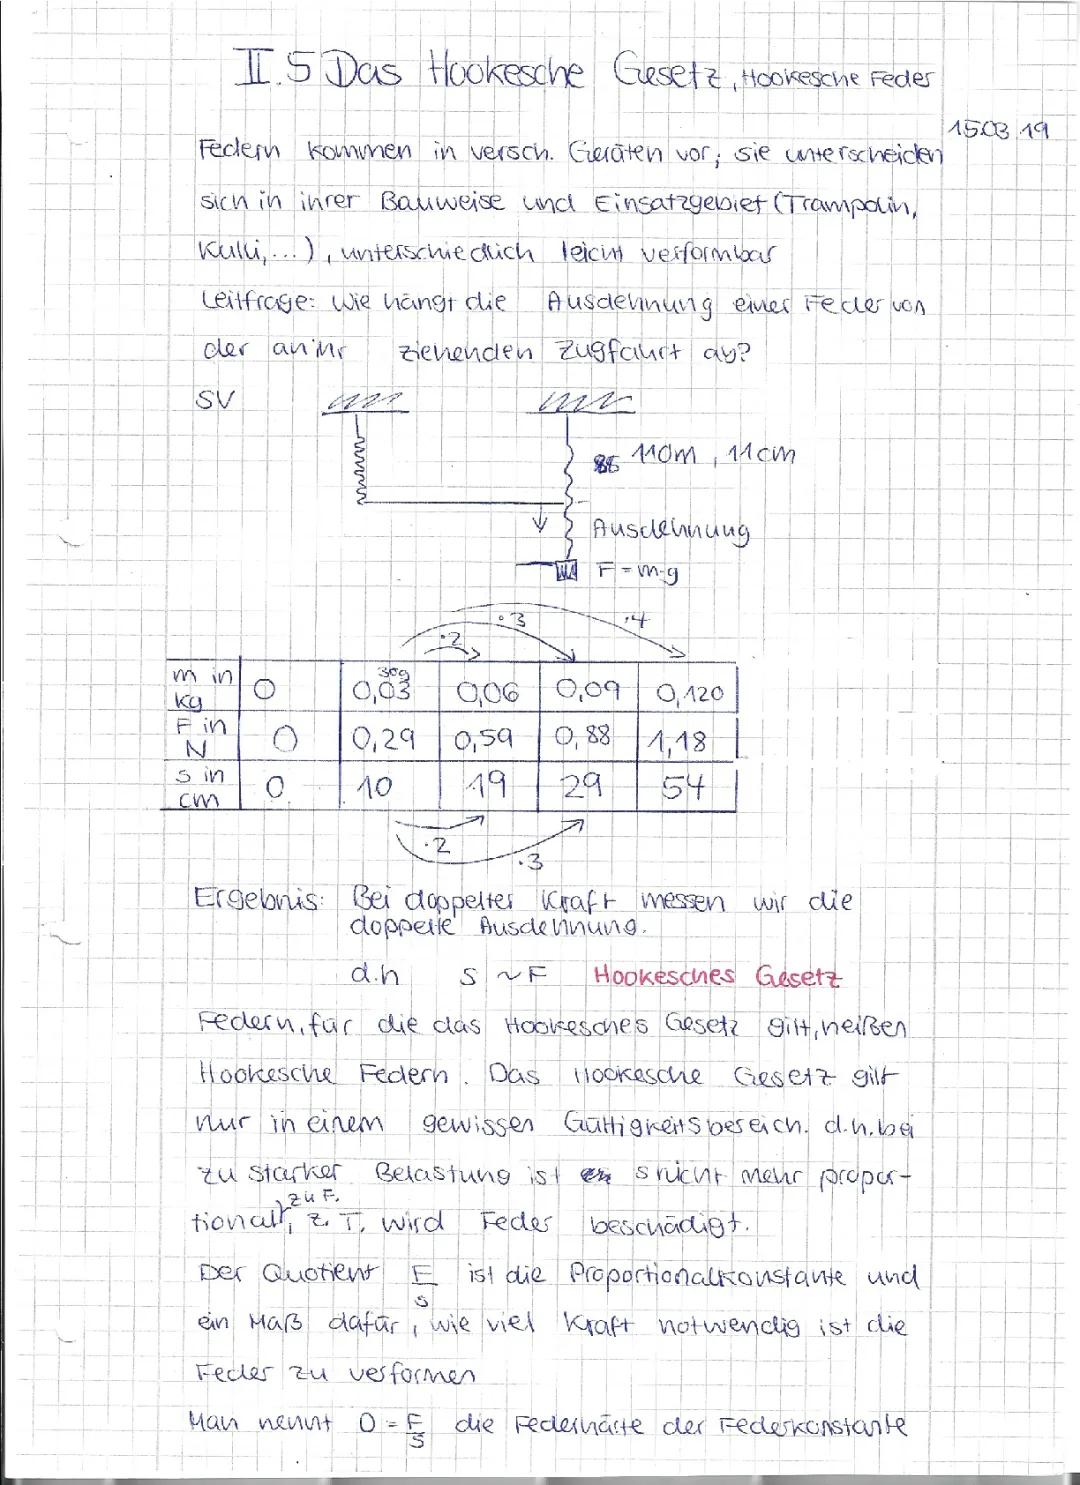 II.5 Das Hookesche Gesetz, Hookesche Feder
15.03.19
Federn kommen in versch. Geräten vor; sie unterscheiden
sich in ihrer Bauweise und Einsatzgebiet (Trampolin,
Kulli,...), unterschiedlich leicht verformbar
Leitfrage: Wie hängt die Ausdehnung einer Feder von
der an ihr ziehenden Zugfahrt ab?
SV
110m, 11cm
Ausdehnung
F = m·g
·2 ·3 ·4
m in kg 0 30g 0,03 0,06 0,09 0,120
F in N 0 0,29 0,59 0,88 1,18
s in cm 0 10 19 29 54
·2 ·3
Ergebnis: Bei doppelter Kraft messen wir die
doppelte Ausdehnung.
d.h s ~ F Hookesches Gesetz
Federn, für die das Hookesches Gesetz gilt, heißen
Hookesche Federn. Das Hookesche Gesetz gilt
nur in einem gewissen Gültigkeitsbereich. d.h. bei
zu starker Belastung ist s nicht mehr propor-
zu F.
tional, z.T. wird Feder beschädigt.
Der Quotient F/s ist die Proportionalkonstante und
ein Maß dafür, wie viel Kraft notwendig ist die
Feder zu verformen
Man nennt D = F/s die Federhärte der Federkonstante